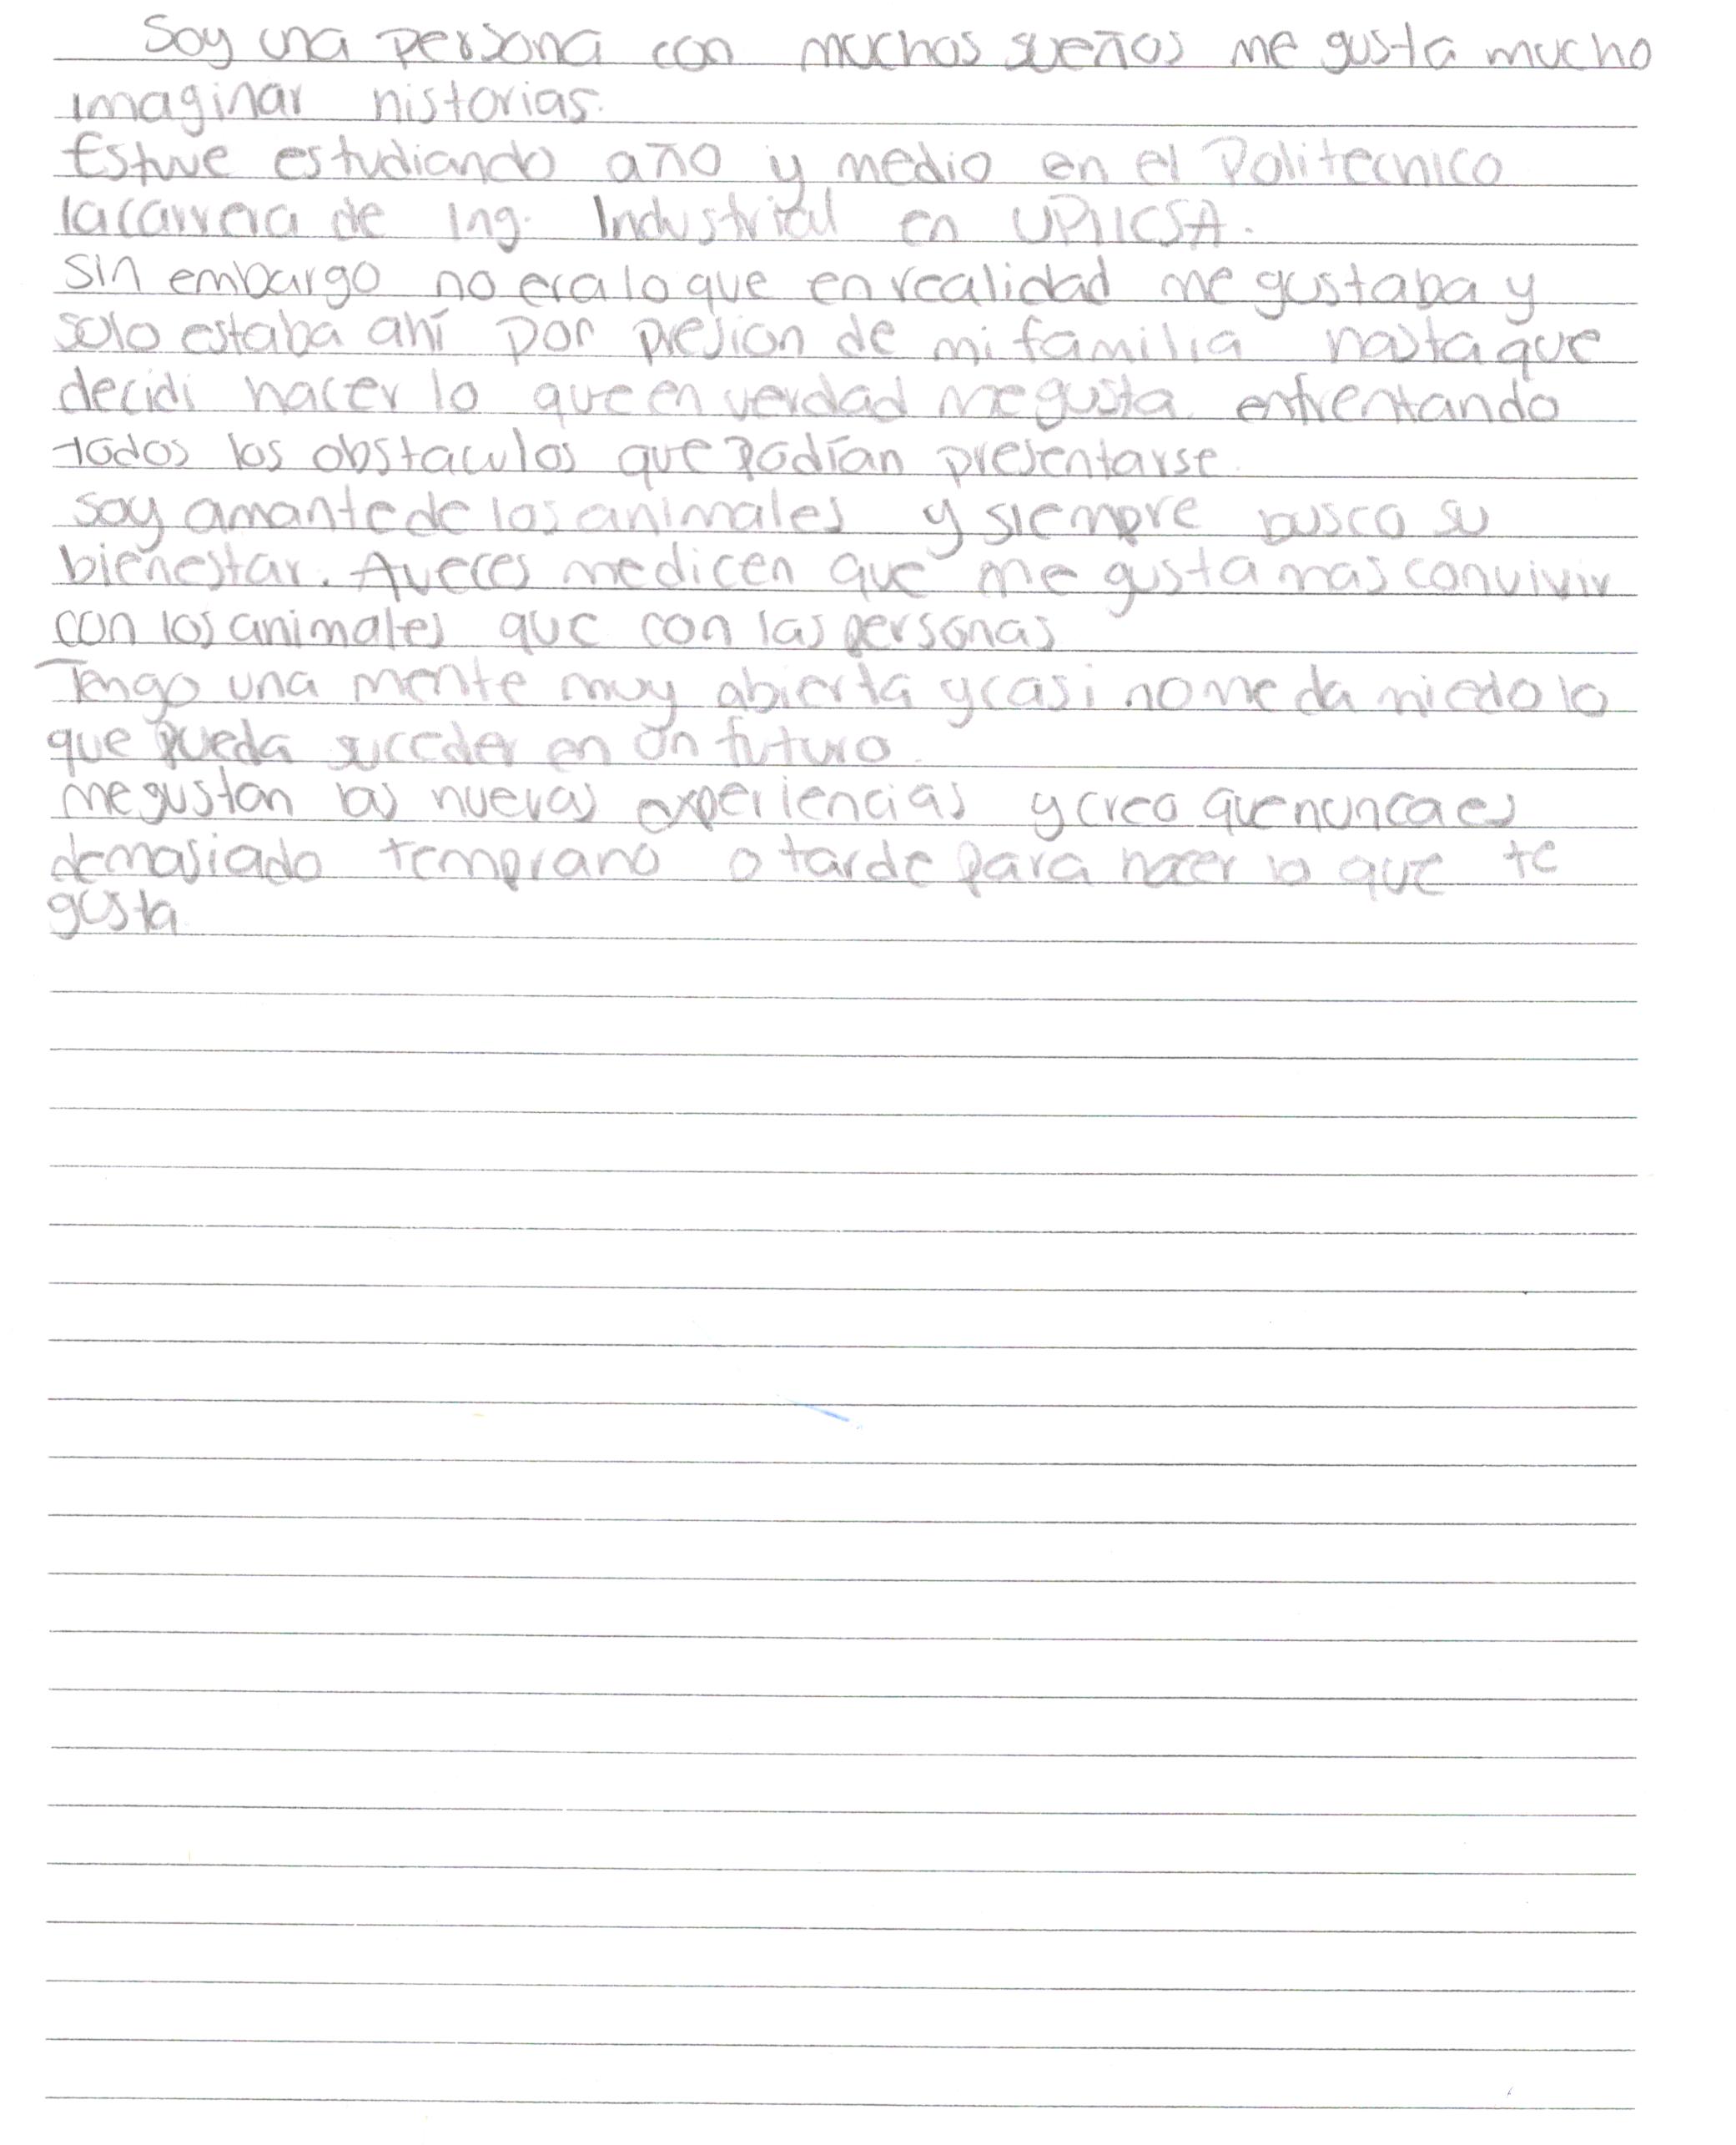 Soy una persona con muchos sueños me gusta mucho
imaginar historias.
Estuve estudiando año y medio en el Politecnico
la carrera de Ing. Industrial en UPIICSA.
Sin embargo no era lo que en realidad me gustaba y
solo estaba ahí por presion de mi familia hasta que
decidi hacer lo que en verdad me gusta enfrentando
todos los obstaculos que podían presentarse.
Soy amante de los animales y siempre busco su
bienestar. Aveces me dicen que me gusta mas convivir
con los animales que con las personas
Tengo una mente muy abierta y casi no me da miedo lo
que pueda suceder en un futuro.
me gustan las nuevas experiencias y creo que nunca es
demasiado temprano o tarde para hacer lo que te
gusta.